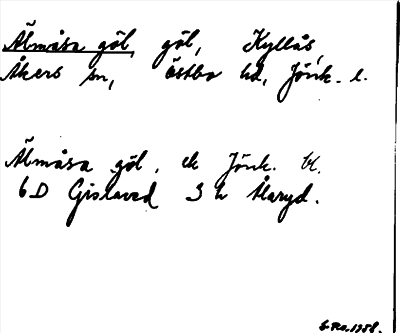 Älmåsa göl, göl, Kyllås,
Åkers sn, Östbo hd, Jönk. l.
Älmåsa göl, ek Jönk. bl.
6D Gislaved 3 h Åaryd.
1958.